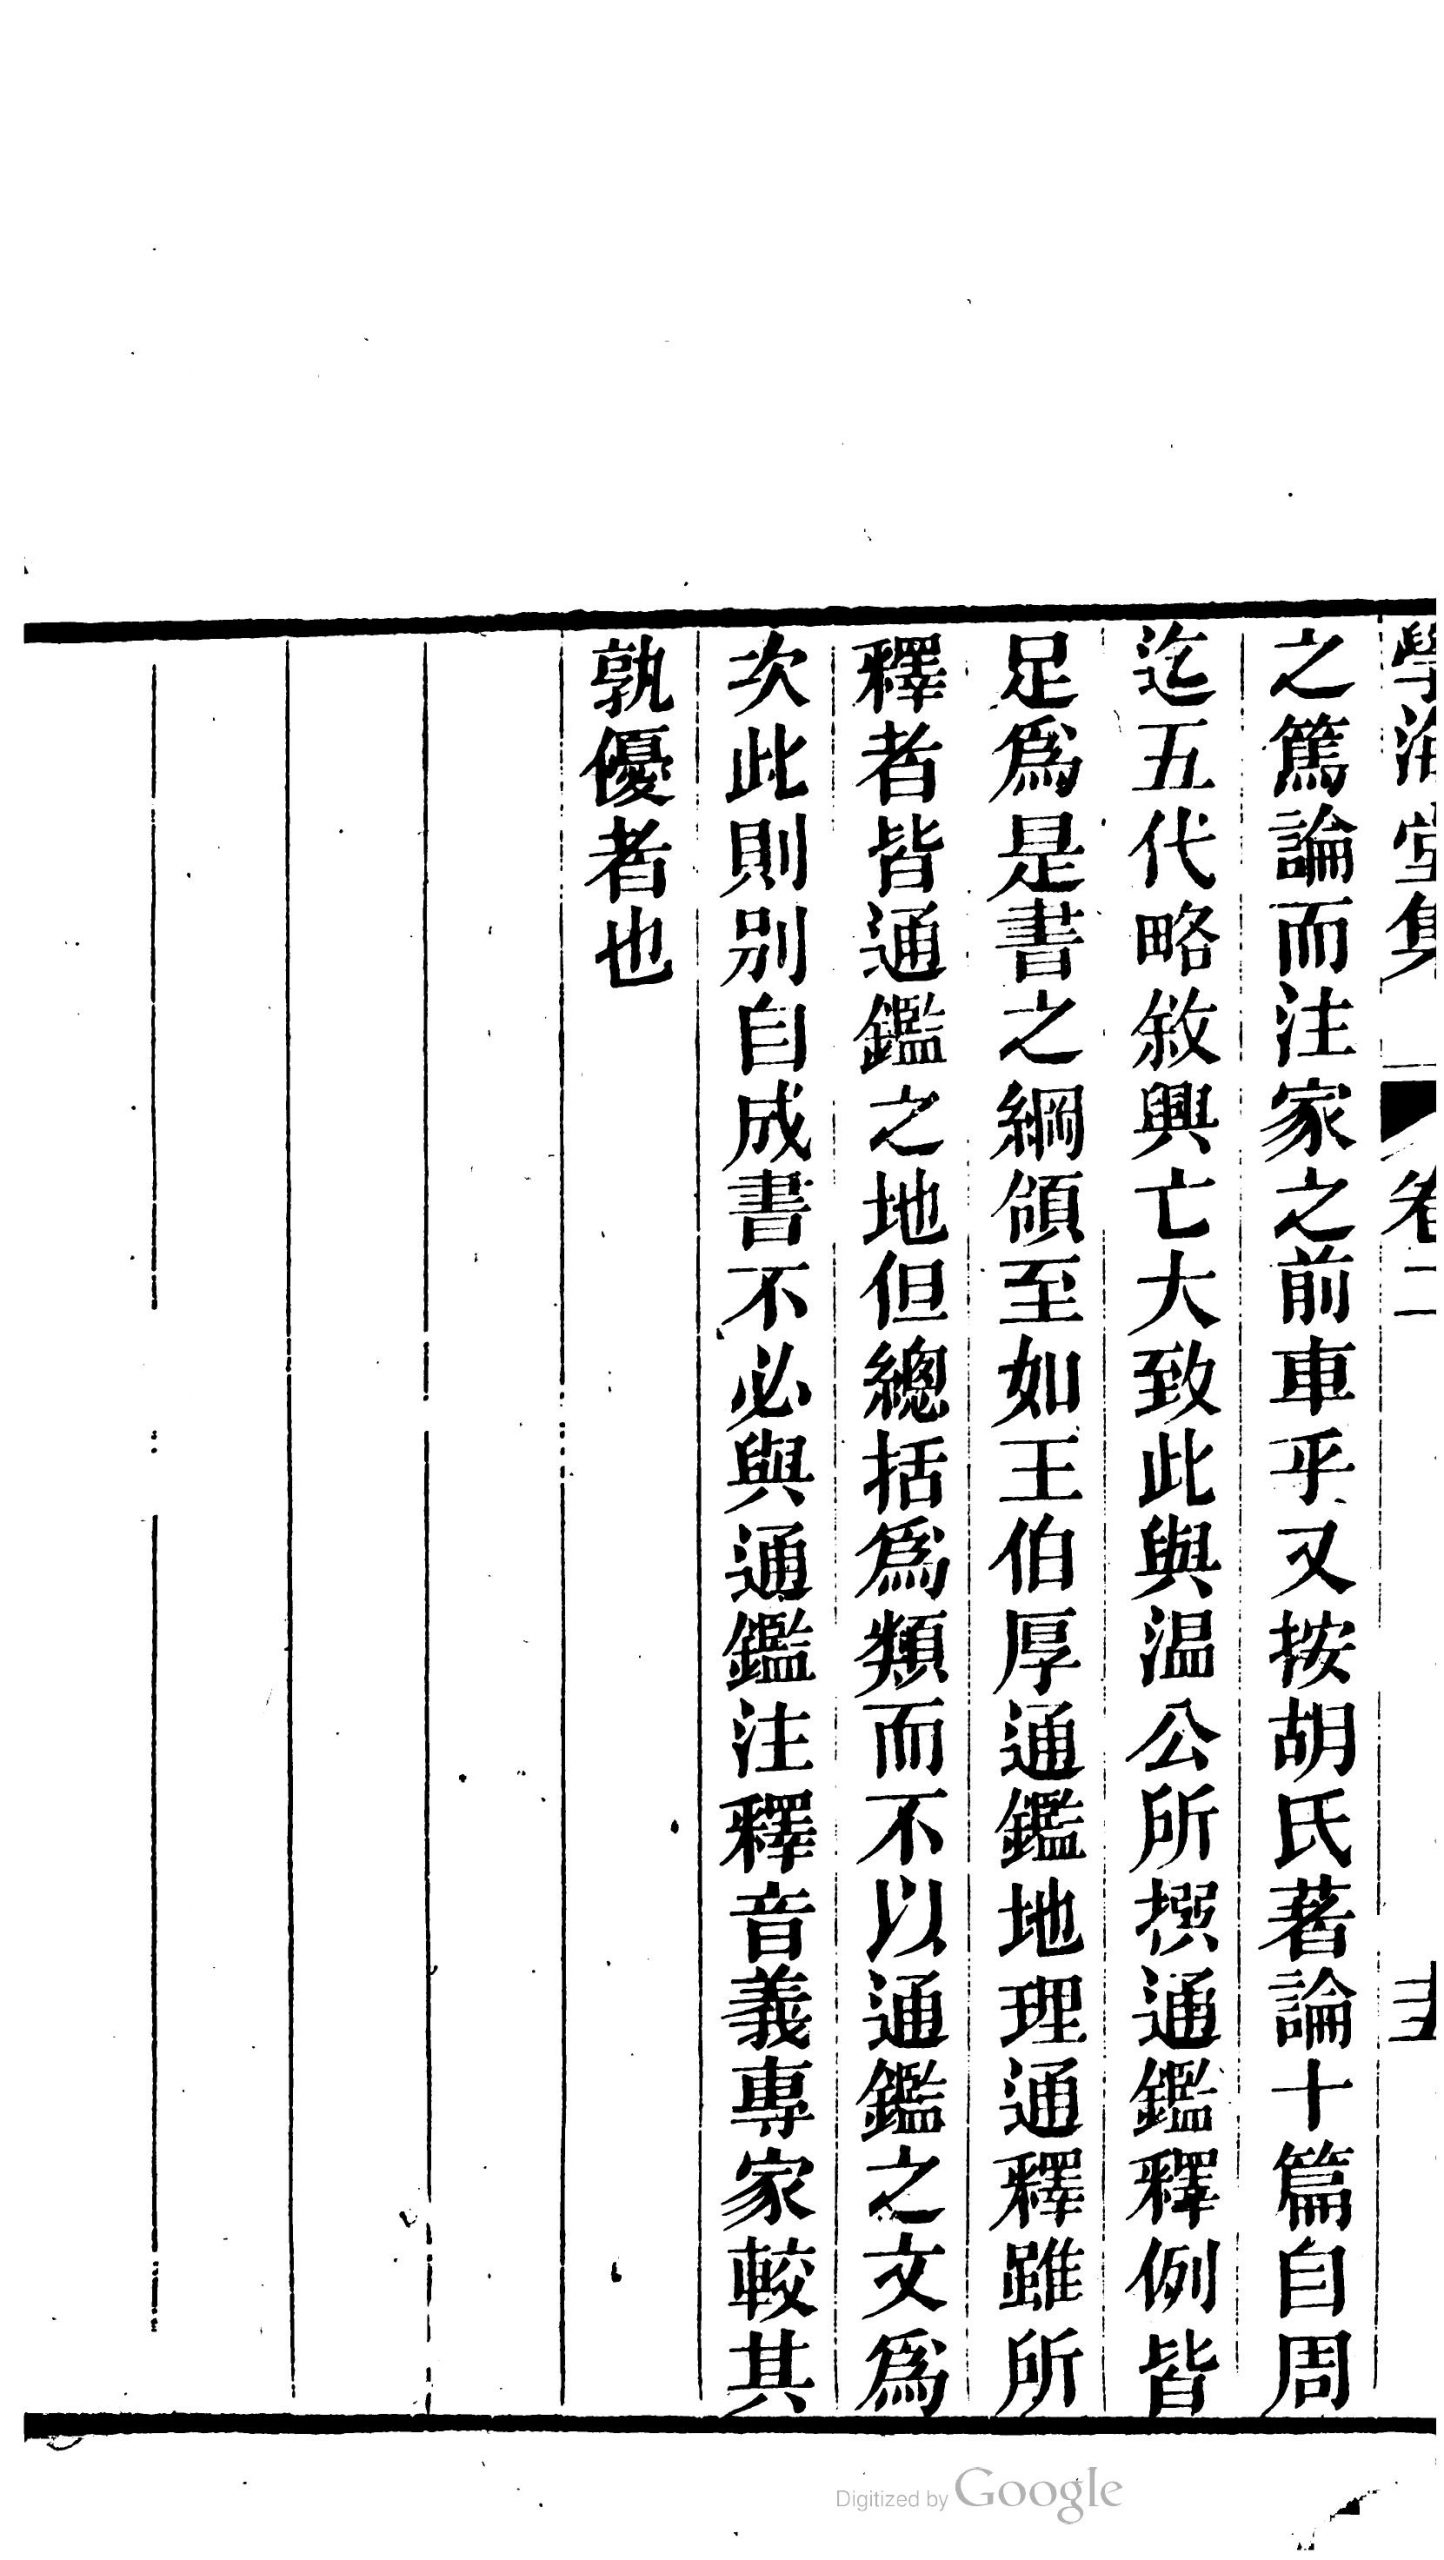 學海堂集 卷二
之篤論而注家之前車乎又按胡氏著論十篇自周
迄五代略敘興亡大致此與温公所撰通鑑釋例皆
足爲是書之綱領至如王伯厚通鑑地理通釋雖所
釋者皆通鑑之地但總括爲類而不以通鑑之文爲
次此則别自成書不必與通鑑注釋音義專家較其
孰優者也
Digitized by Google